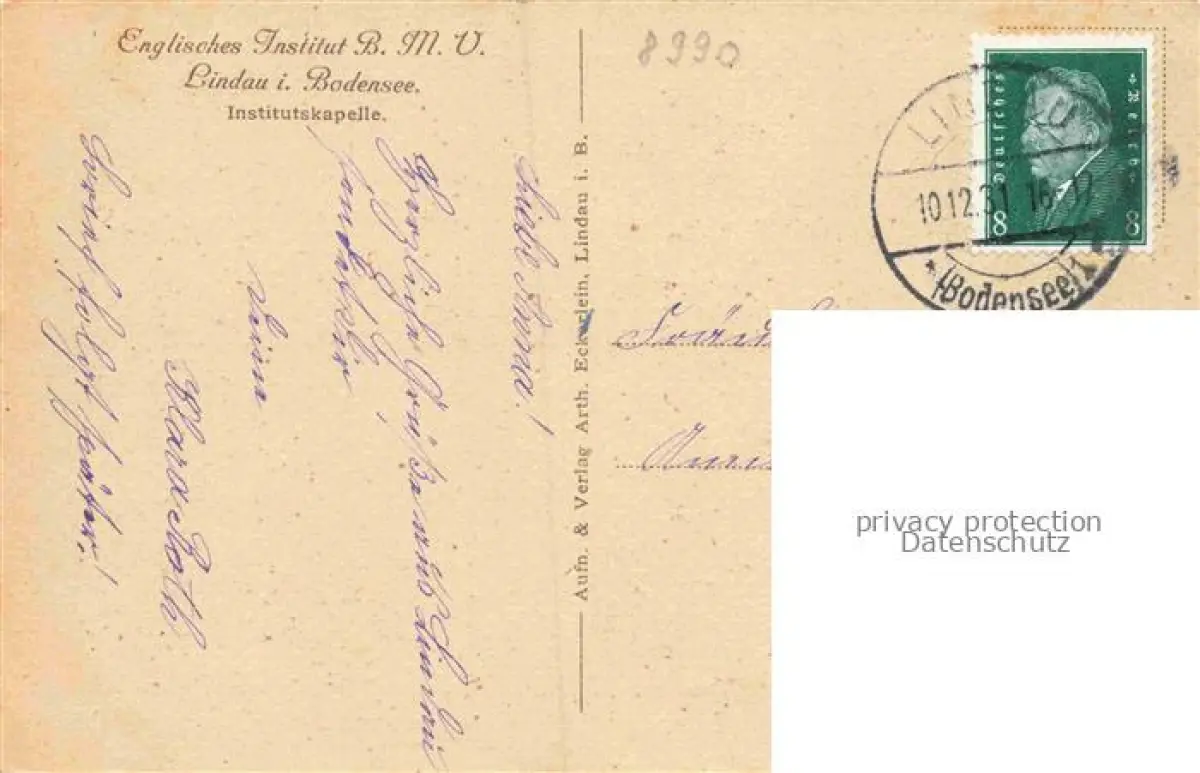 Englisches Institut B. M. V.
Lindau i. Bodensee.
Institutskapelle.
8990
Liebe Anna!
Herzliche Grüße aus Lindau
sendet Dir
Deine
Klara
Brief folgt später!
Aufn. & Verlag Arth. Eckerlein, Lindau i. B.
Deutsches Reich
8 8
LINDAU
10.12.31 16
* (Bodensee)
privacy protection
Datenschutz